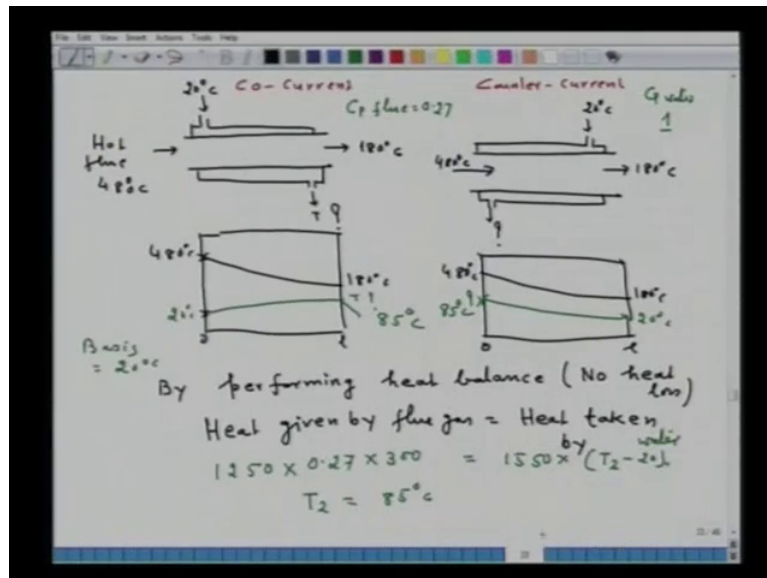 File Edit View Insert Actions Tools Help
Co-Current
Counter-Current
20°c
Cp flue=0.27
20°c
Cp water
1
Hot
flue
480°c
180°c
T ?
480°c
180°c
?
480°c
180°c
T ?
20°c
85°c
0
l
480°c
180°c
85°c
?
20°c
0
l
Basis
= 20°c
By performing heat balance (No heat loss)
Heat given by flue gas = Heat taken by water
1250 x 0.27 x 300 = 1550 x (T2-20)
T2 = 85°c